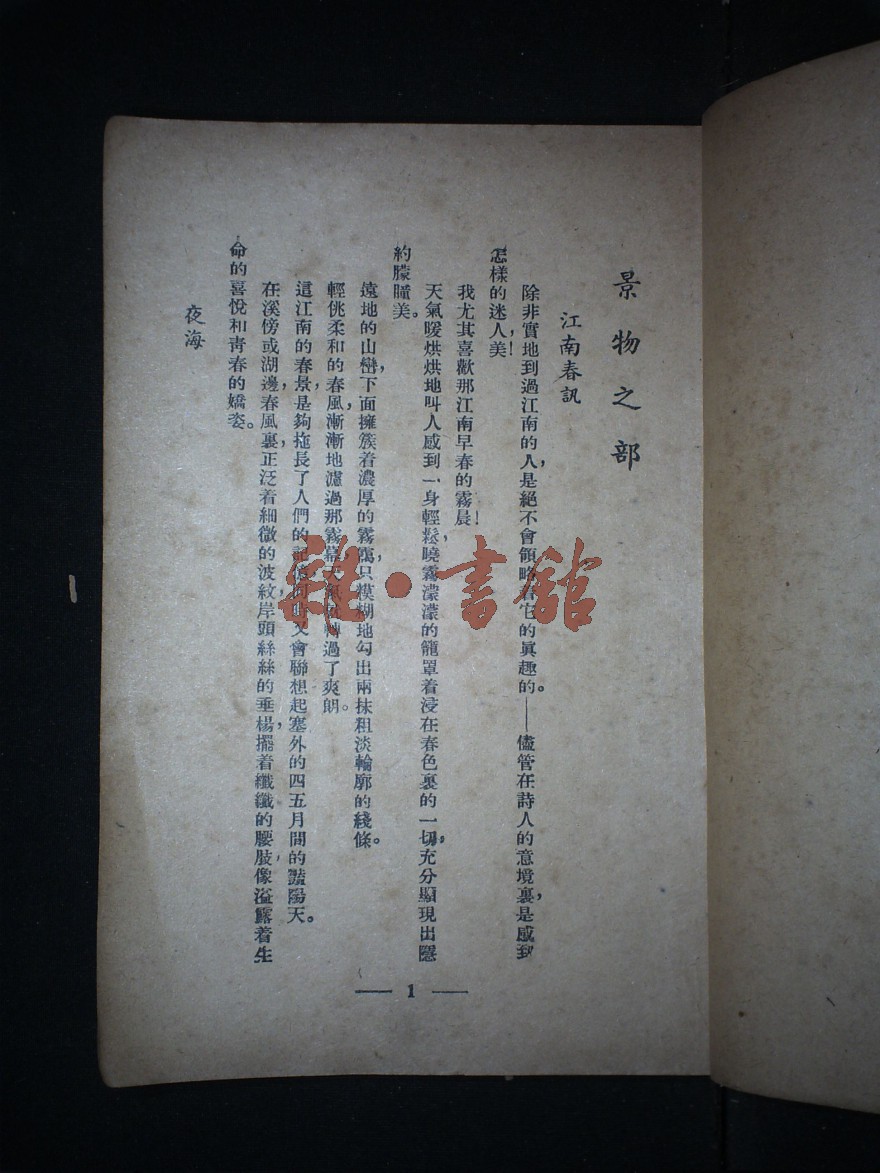 景物之部
江南春訊
除非實地到過江南的人,是絕不會領略着它的眞趣的。——儘管在詩人的意境裏,是感到
怎樣的迷人,美!
我尤其喜歡那江南早春的霧晨!
天氣暖烘烘地叫人感到一身輕鬆,曉霧濛濛的籠罩着浸在春色裏的一切,充分顯現出隱
約朦朣美。
遠地的山巒,下面擁簇着濃厚的霧靄,只糢糊地勾出兩抹粗淡輪廓的綫條。
輕佻柔和的春風,漸漸地濾過那霧幕,天氣轉過了爽朗。
這江南的春景,是夠拖長了人們的記憶,同時又會聯想起塞外的四五月間的豔陽天。
在溪傍或湖邊,春風裏,正泛着細微的波紋,岸頭絲絲的垂楊,擺着纖纖的腰肢,像溢露着生
命的喜悅和靑春的嬌姿。
夜海
— 1 —
雜·書館